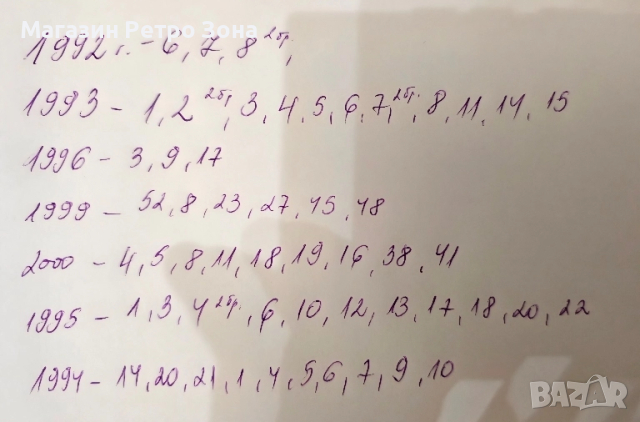 Магазин Ретро Зона
1992 г. - 6, 7, 8 2бр,
1993 - 1, 2 2бр, 3, 4, 5, 6, 7, 2бр., 8, 11, 14, 15
1996 - 3, 9, 17
1999 - 52, 8, 23, 27, 45, 48
2000 - 4, 5, 8, 11, 18, 19, 16, 38, 41
1995 - 1, 3, 4 2бр., 6, 10, 12, 13, 17, 18, 20, 22
1994 - 14, 20, 21, 1, 4, 5, 6, 7, 9, 10
BAZAR